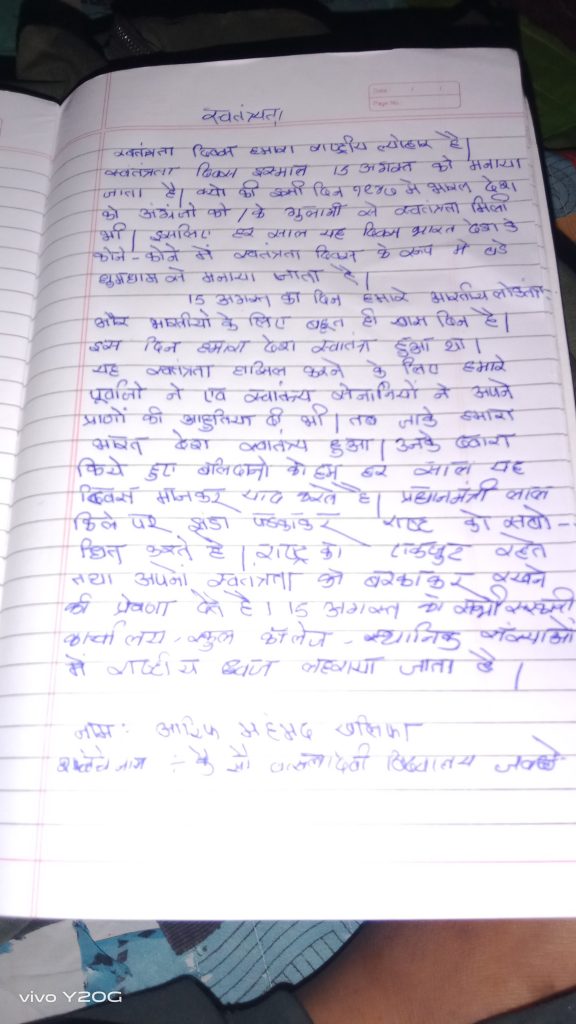 Date / /
Page No.
स्वतंत्र्यता
स्वतंत्रता दिवस हमारा राष्ट्रीय त्योहार है|
स्वतंत्रता दिवस हरसाल 15 अगस्त को मनाया
जाता है| क्यो की इसी दिन १९४७ मे भारत देश
को अंग्रेजो को / के गुलामी से स्वतंत्रता मिली
थी| इसलिए हर साल यह दिवस भारत देश के
कोने-कोने में स्वतंत्रता दिवस के रूप मे बडे
धुमधाम से मनाया जाता है|
15 अगस्त का दिन हमारे भारतीय
और भारतीयो के लिए बहुत ही खास दिन है|
इस दिन हमारा देश स्वातंत्र हुआ था|
यह स्वतंत्रता हासिल करने के लिए हमारे
पूर्वजो ने एवं स्वातंत्र्य सेनानियों ने अपने
प्राणों की आहुतिया दी थी| तब जाके हमारा
भारत देश स्वातंत्र्य हुआ| उनके द्वारा
किये हुए बलिदानो को हम हर साल यह
दिवस मानकर याद करते है| प्रधानमंत्री लाल
किले पर झंडा राष्ट्र को संबो-
धित करते है| राष्ट्र को एकजुट रहने
तथा अपनी स्वतंत्रता को बरकरार रखने
की प्रेरणा देते है| 15 अगस्त को सभी सरकारी
कार्यालय-स्कुल कॉलेज-स्थानिक संस्थाओं
में राष्ट्रीय ध्वज लहराया जाता है|
नाम: आरिफ महंमद खलिफा
नाम :- कै सौ विद्यालय
vivo Y20G